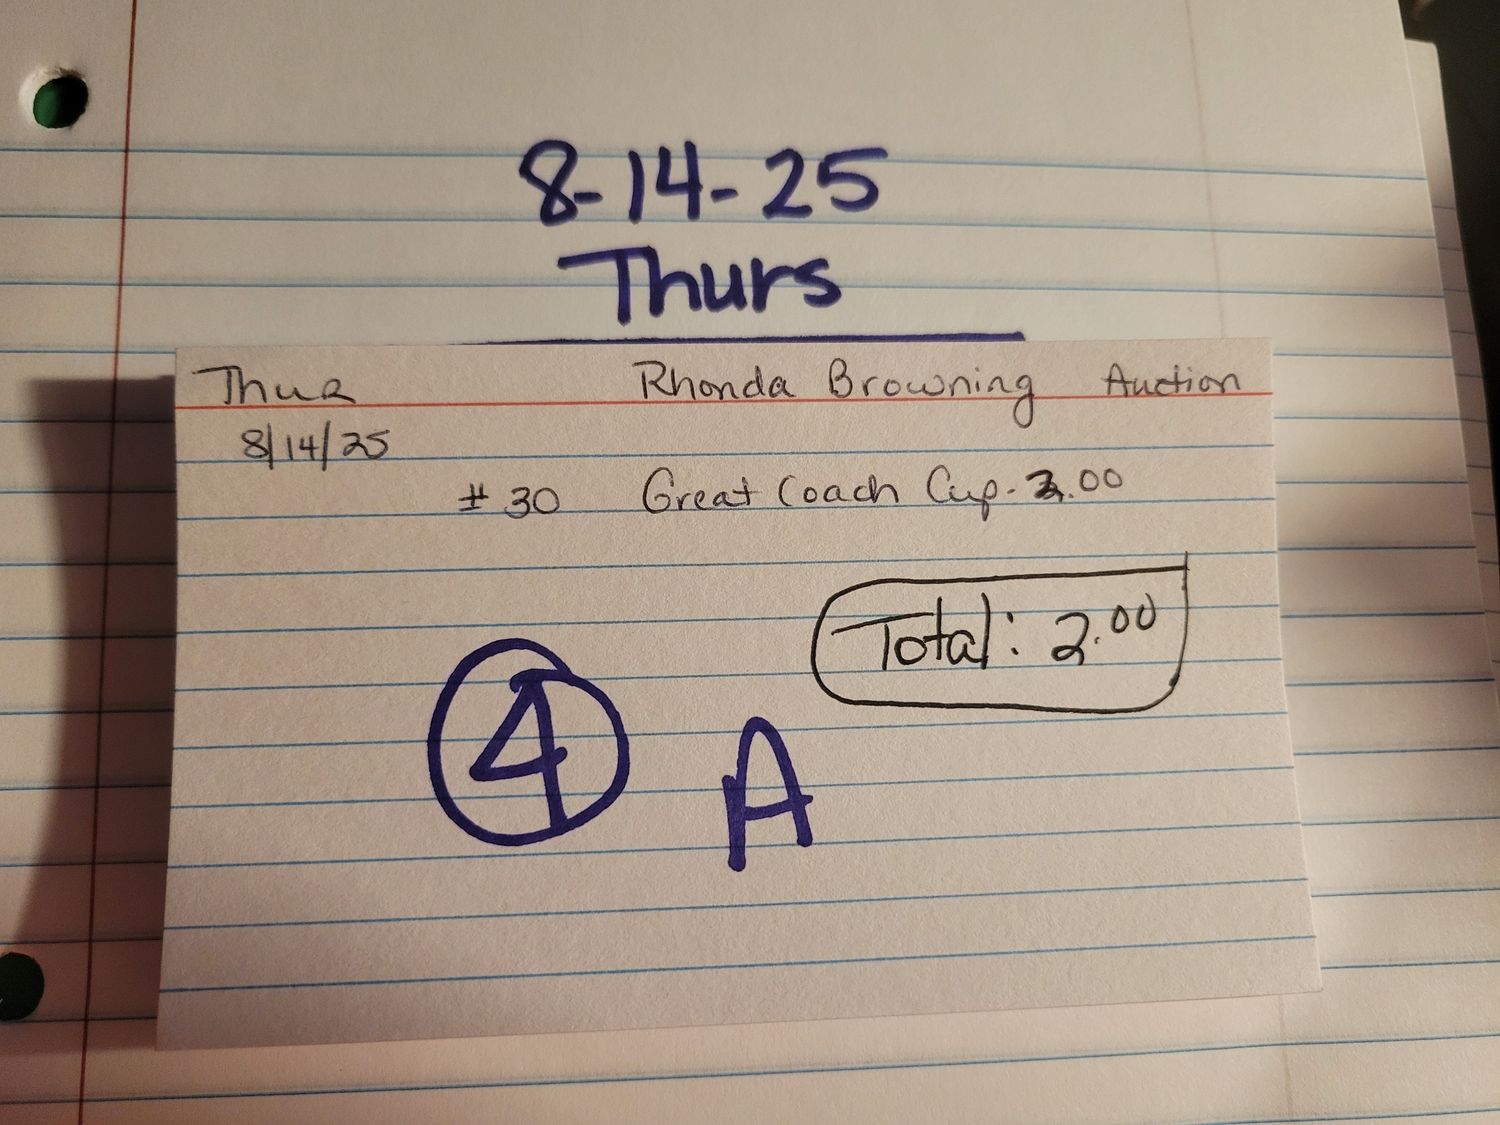 8-14-25
Thurs
Thur Rhonda Browning Auction
8/14/25
# 30 Great Coach Cup - 2.00
Total: 2.00
4 A